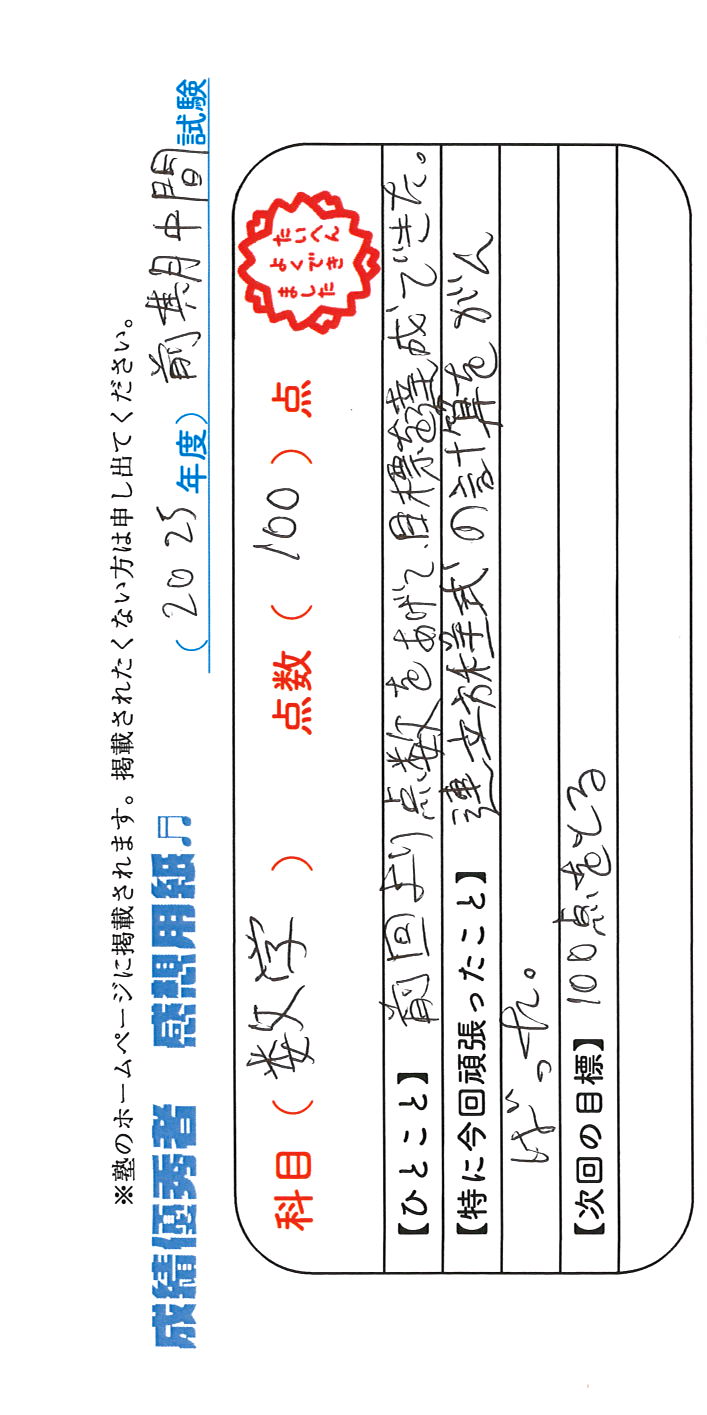 ※塾のホームページに掲載されます。掲載されたくない方は申し出てください。
成績優秀者 感想用紙♬ （2025年度）前期中間試験
科目（数学） 点数（100）点
たいへん
よくでき
ました
【ひとこと】前回より点数をあげて、目標を達成できた。
【特に今回頑張ったこと】連立方程式の計算をがん
ばった。
【次回の目標】100点をとる